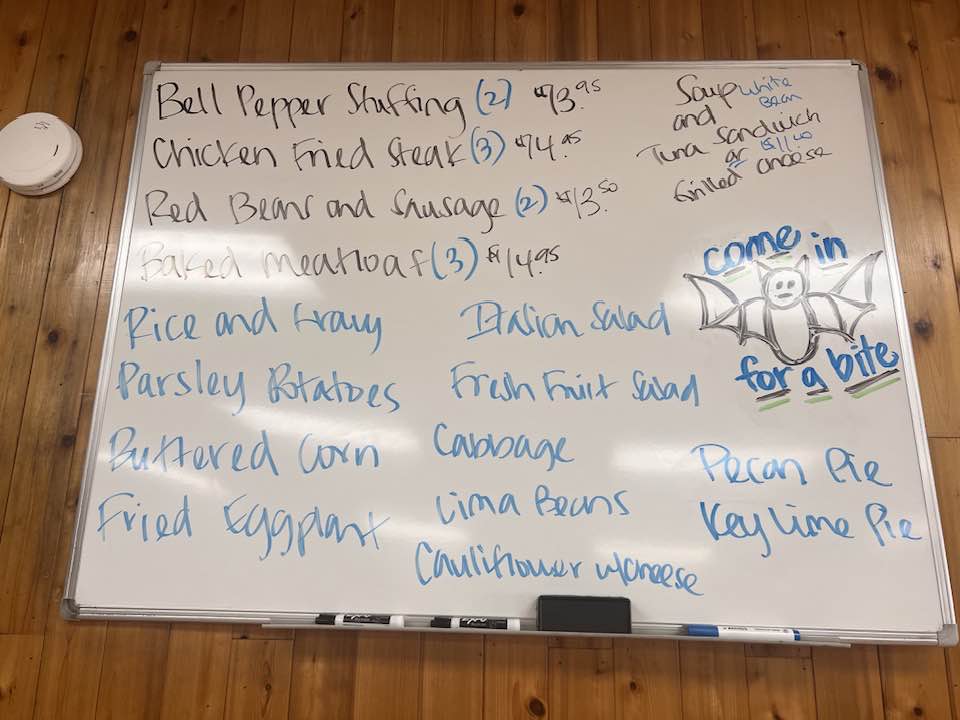 Bell Pepper Stuffing (2) $13.95
Chicken Fried Steak (3) $14.95
Red Beans and Sausage (2) $13.50
Baked Meatloaf (3) $14.95
Soup White Bean
and
Tuna Sandwich
or $11.40
Grilled Cheese
come in
for a bite
Rice and Gravy
Parsley Potatoes
Buttered Corn
Fried Eggplant
Italian Salad
Fresh Fruit Salad
Cabbage
Lima Beans
Cauliflower w/cheese
Pecan Pie
Key Lime Pie